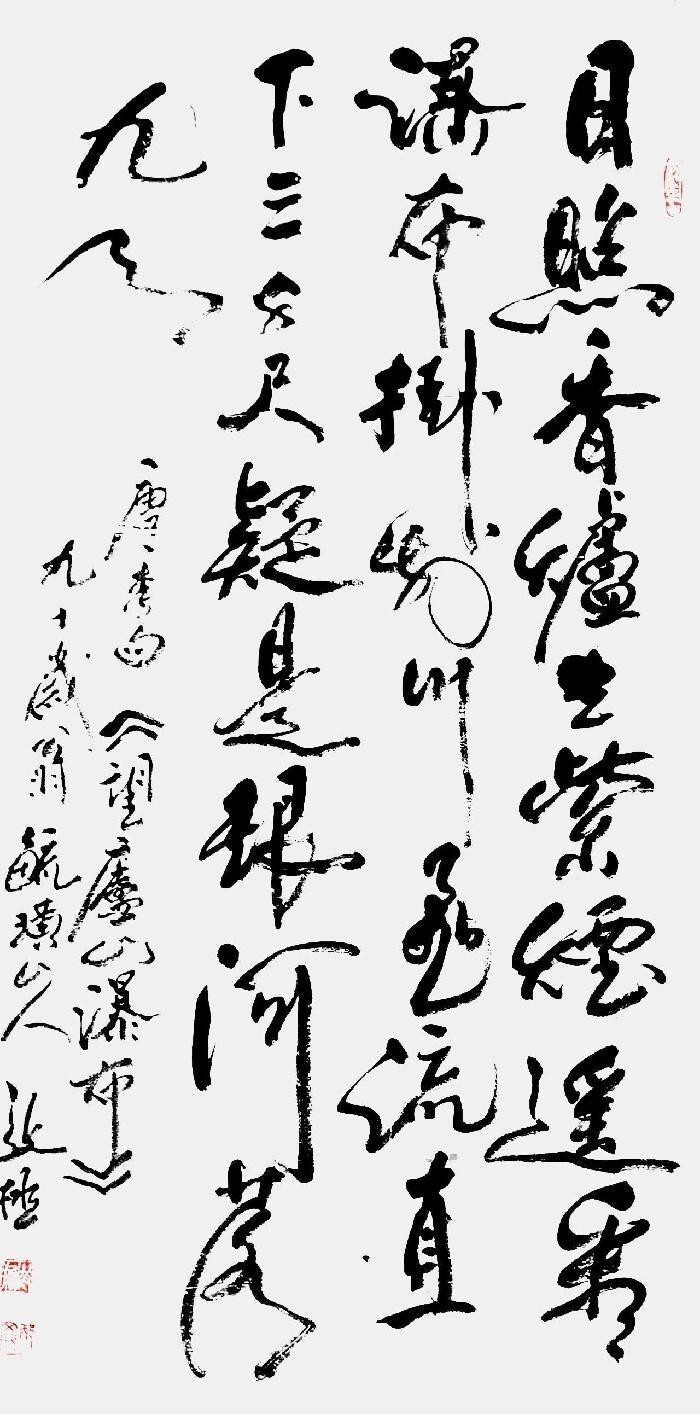 日照香爐生紫煙遥看
瀑布掛前川飛流直
下三千尺疑是銀河落
九天
唐李白《望廬山瀑布》
九十歲翁毓璜山人